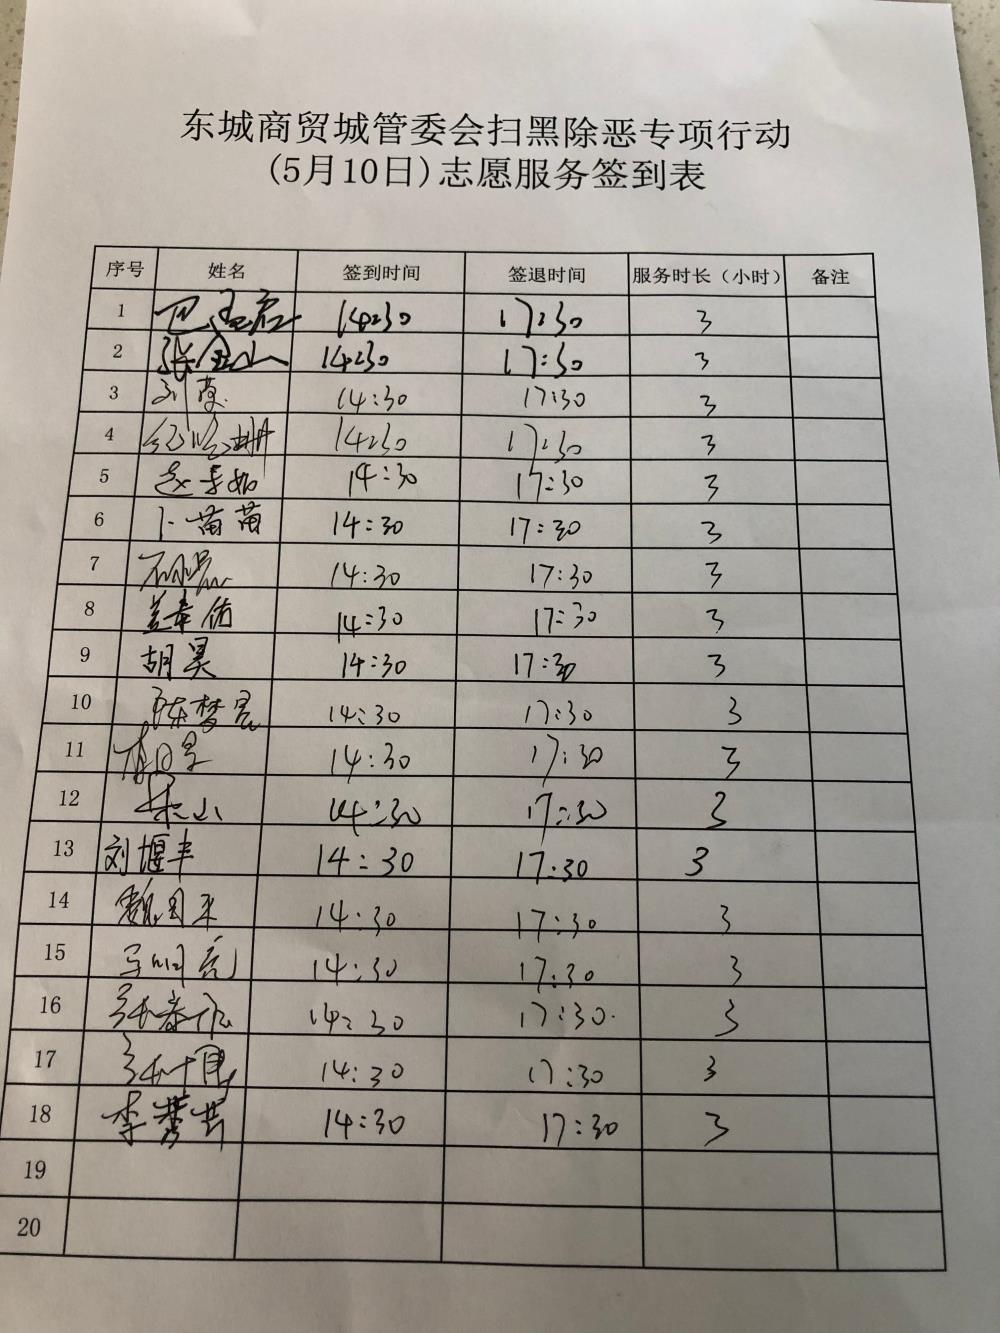 东城商贸城管委会扫黑除恶专项行动
(5月10日)志愿服务签到表
序号 姓名 签到时间 签退时间 服务时长（小时） 备注
1 14:30 17:30 3
2 张金山 14:30 17:30 3
3 14:30 17:30 3
4 14:30 17:30 3
5 14:30 17:30 3
6 卜苗苗 14:30 17:30 3
7 14:30 17:30 3
8 14:30 17:30 3
9 胡昊 14:30 17:30 3
10 陈梦亮 14:30 17:30 3
11 14:30 17:30 3
12 14:30 17:30 3
13 刘堰丰 14:30 17:30 3
14 14:30 17:30 3
15 马明亮 14:30 17:30 3
16 14:30 17:30 3
17 14:30 17:30 3
18 14:30 17:30 3
19
20